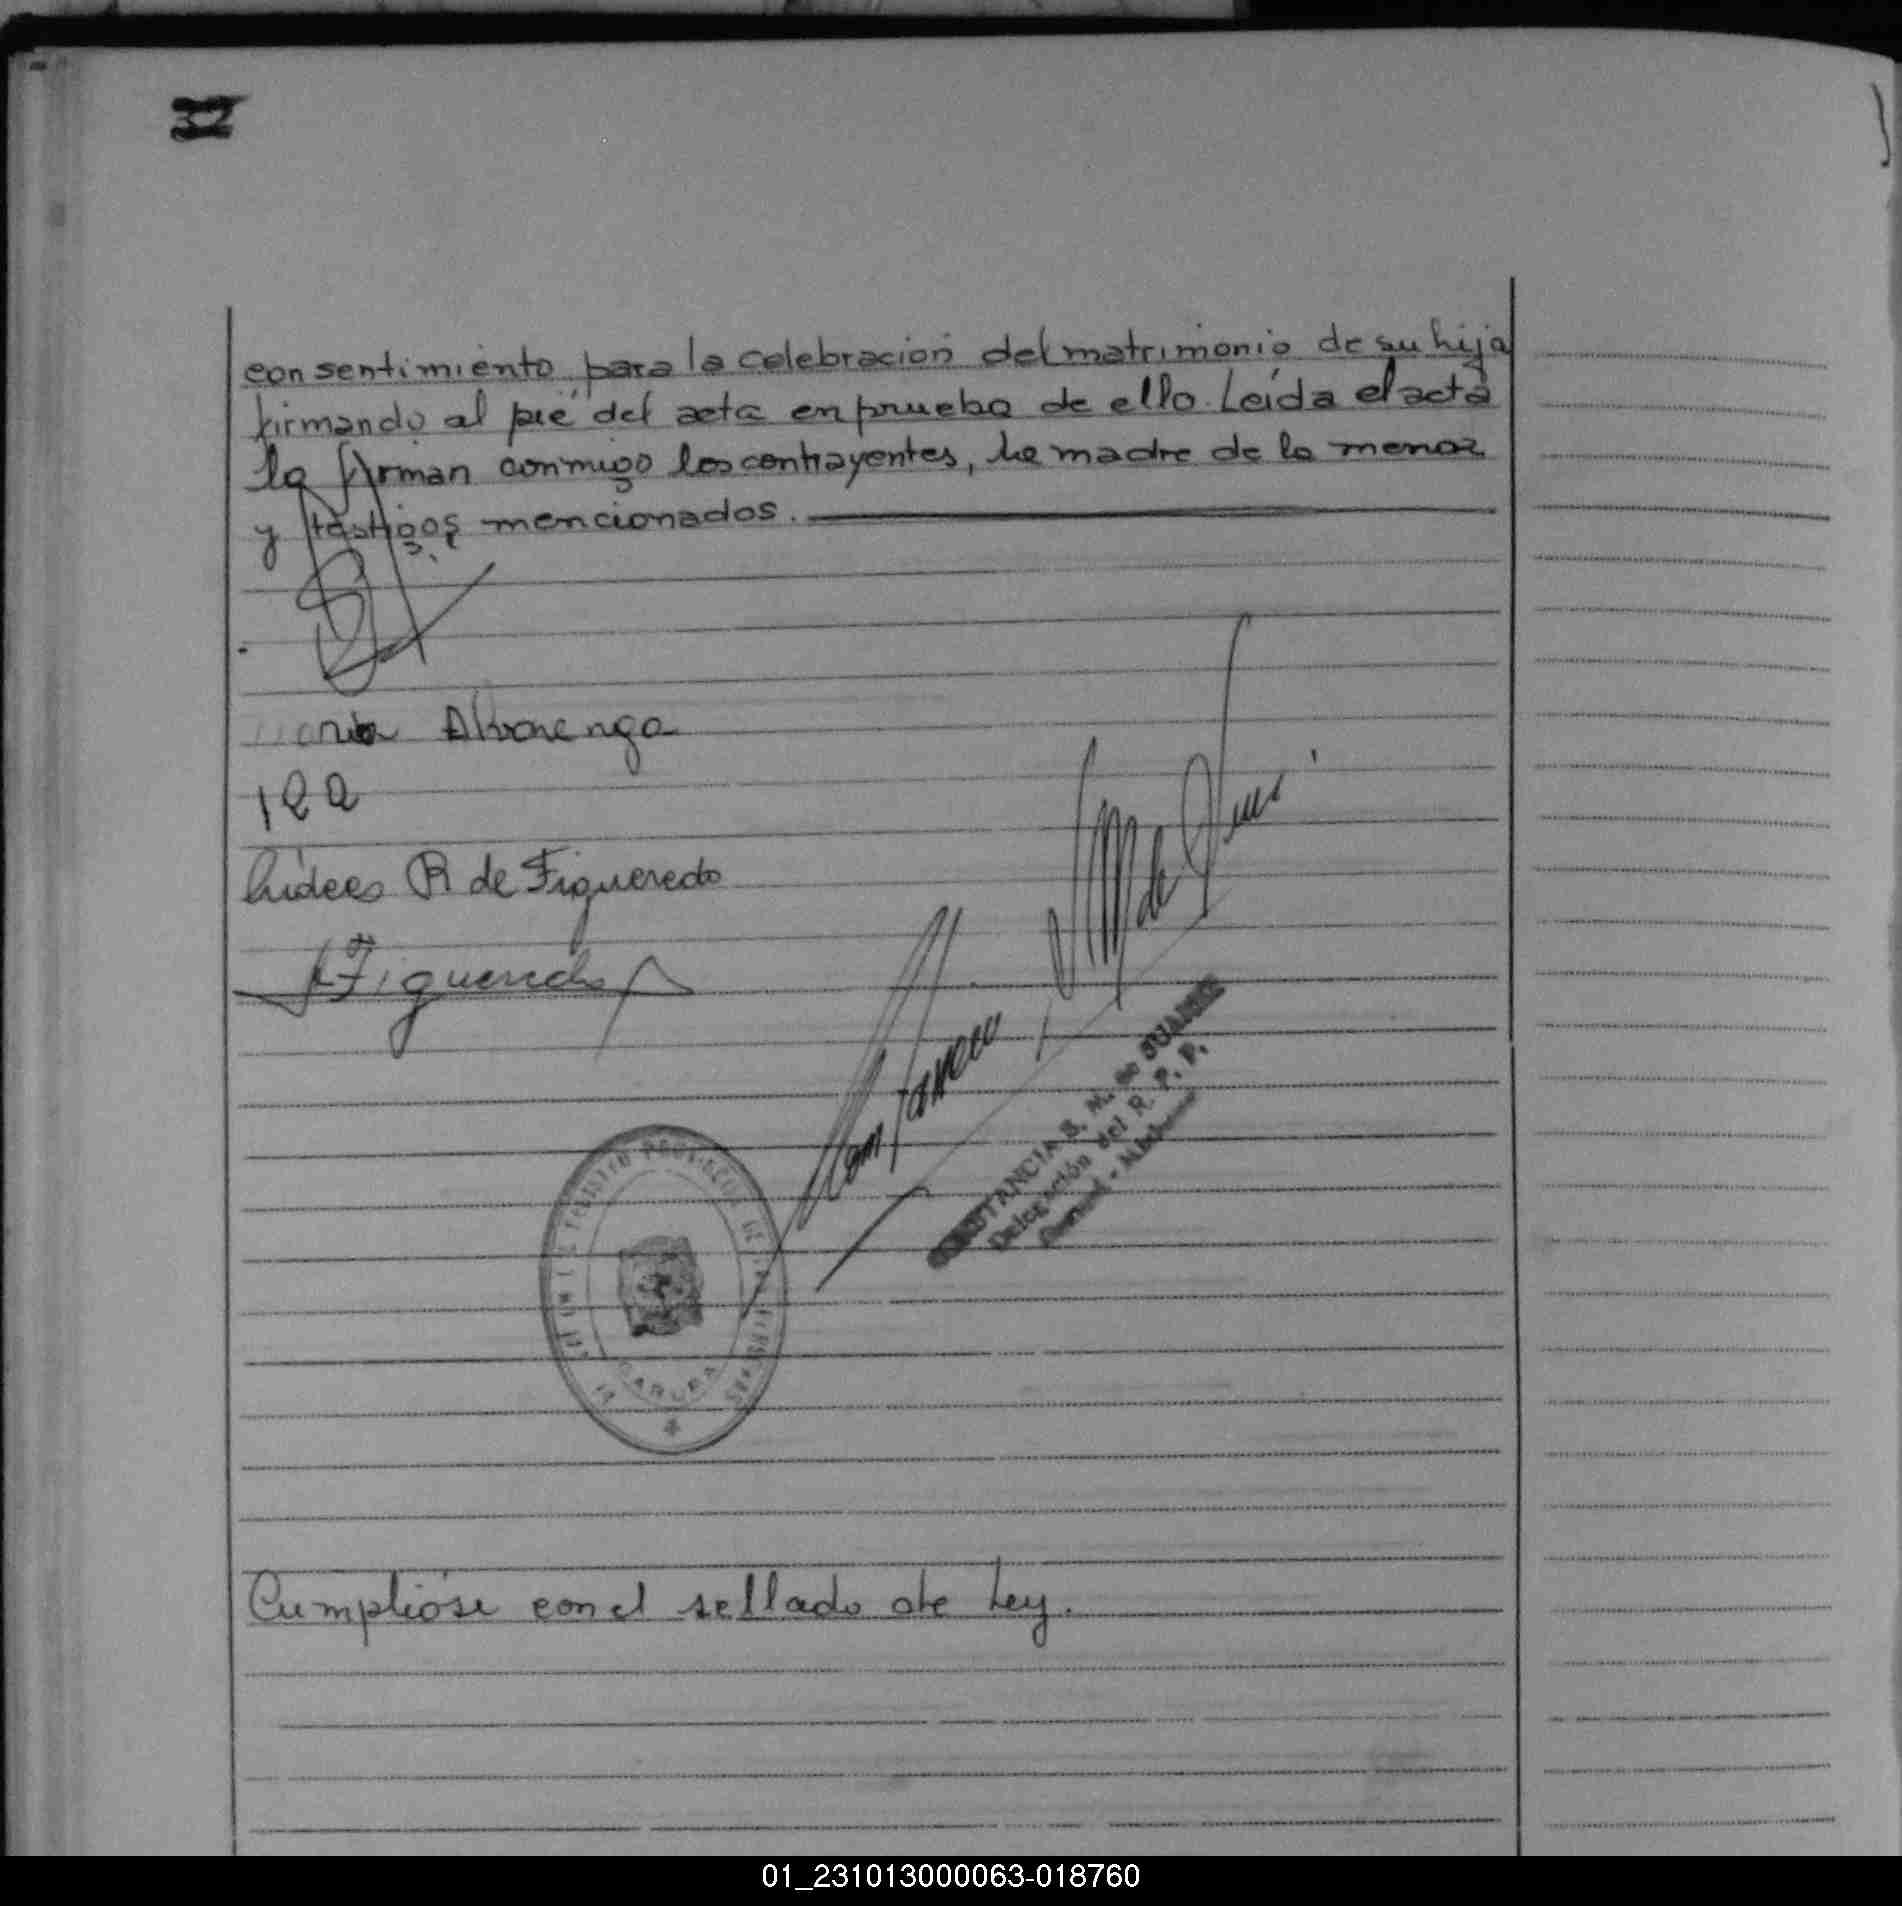 32
consentimiento para la celebración del matrimonio de su hija
firmando al pié del acta en prueba de ello. Leída el acta
la firman conmigo los contrayentes, la madre de la menor
y testigos mencionados.
Alvarenga
R de Figueredo
Figueredo
CONSTANCIA S. M. de JUAREZ
Delegación del R. P. P.
REGISTRO PROVINCIAL DE LAS PERSONAS
Cumplióse con el sellado de Ley.
01_231013000063-018760